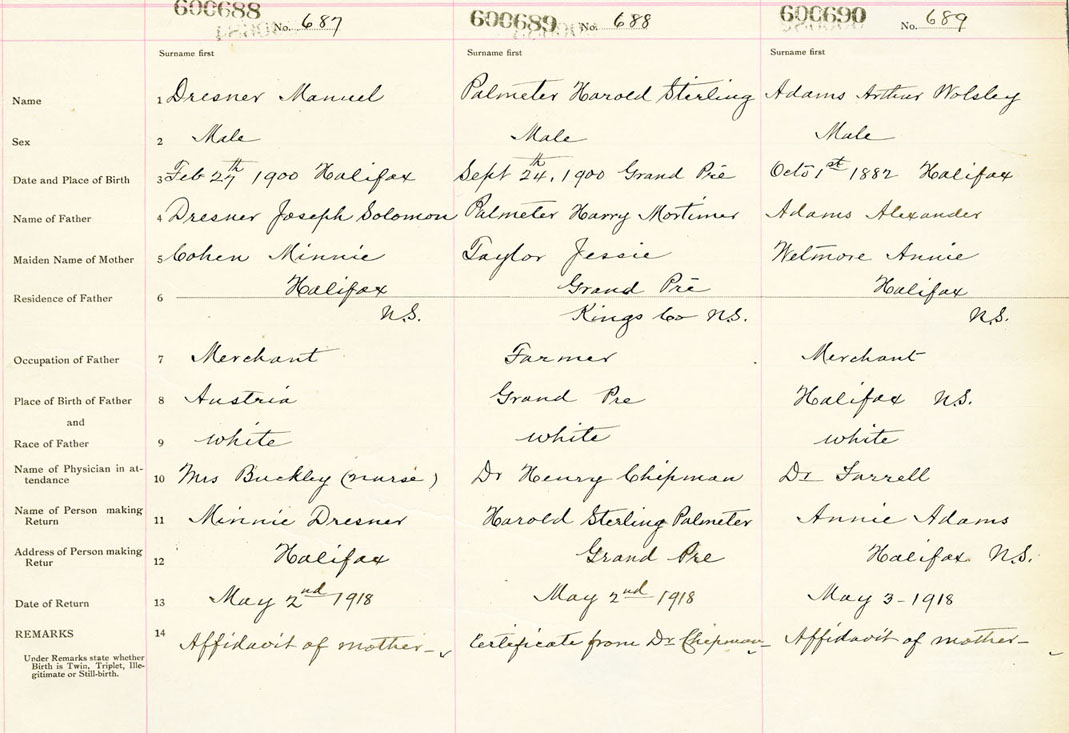 600688 No. 687 600689 No. 688 600690 No. 689
Surname first Surname first Surname first
Name 1 Dresner Manuel Palmeter Harold Sterling Adams Arthur Wolsley
Sex 2 Male Male Male
Date and Place of Birth 3 Feb 27th 1900 Halifax Sept 24th, 1900 Grand Pré Octo 1st 1882 Halifax
Name of Father 4 Dresner Joseph Solomon Palmeter Harry Mortimer Adams Alexander
Maiden Name of Mother 5 Cohen Minnie Taylor Jessie Wetmore Annie
Residence of Father 6 Halifax Grand Pré Halifax
N.S. Kings Co N.S. N.S.
Occupation of Father 7 Merchant Farmer Merchant
Place of Birth of Father 8 Austria Grand Pre Halifax N.S.
and
Race of Father 9 white white white
Name of Physician in at-
tendance 10 Mrs Buckley (nurse) Dr Henry Chipman Dr Farrell
Name of Person making
Return 11 Minnie Dresner Harold Sterling Palmeter Annie Adams
Address of Person making
Retur 12 Halifax Grand Pre Halifax N.S.
Date of Return 13 May 2nd 1918 May 2nd 1918 May 3-1918
REMARKS 14 Affidavit of mother- Certificate from Dr Chipman- Affidavit of mother-
Under Remarks state whether
Birth is Twin, Triplet, Ille-
gitimate or Still-birth.